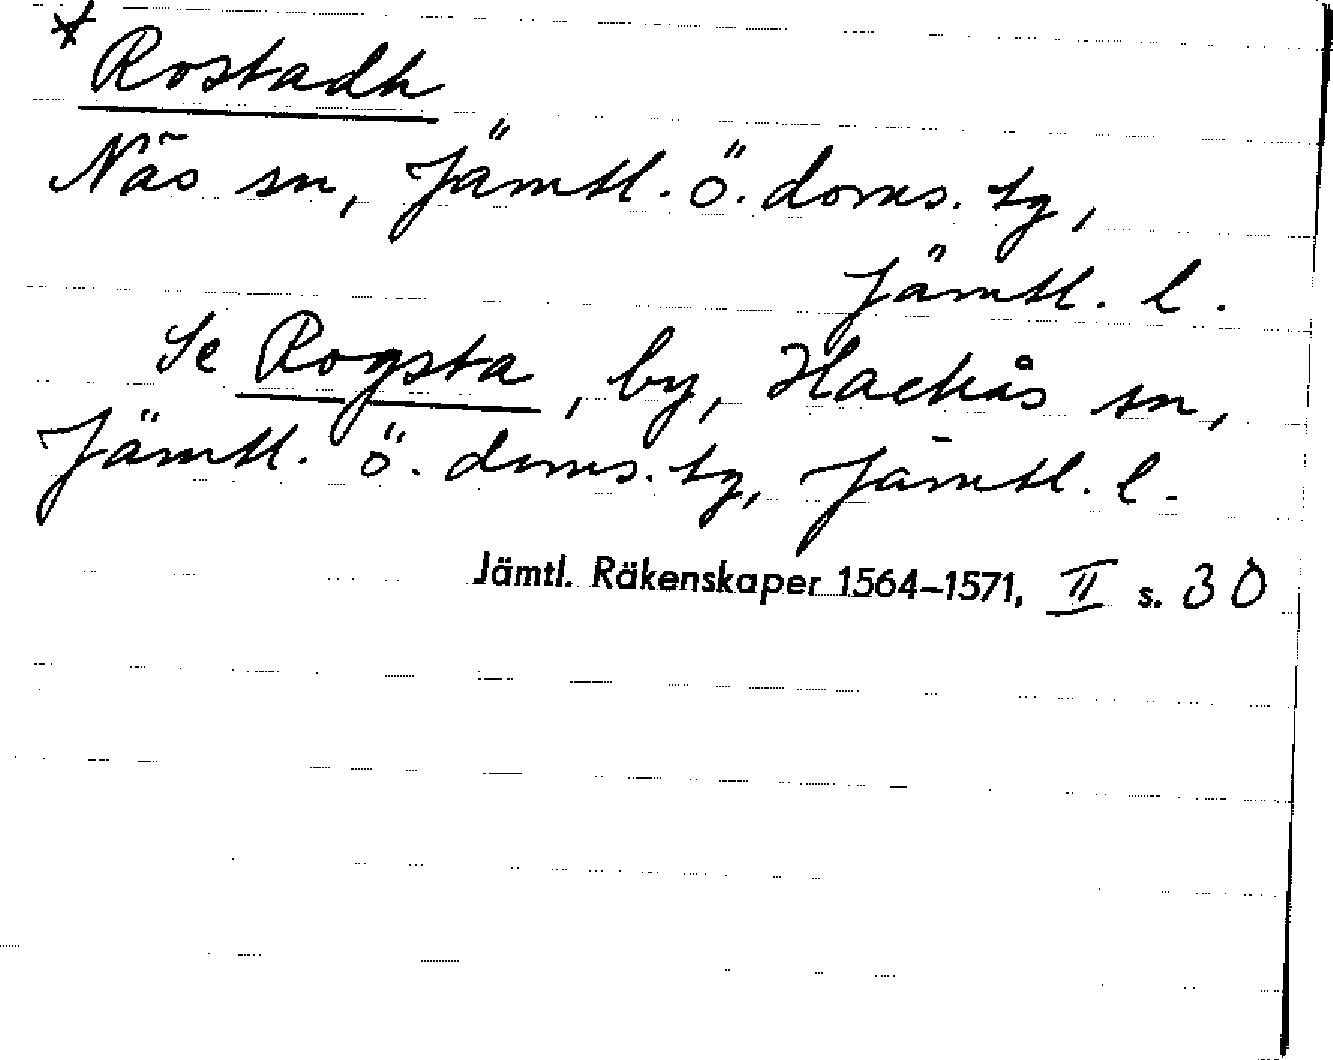 * Rostadh
Näs sn, Jämtl. ö. doms. tg,
Jämtl. l.
Se Rogsta, by, Hackås sn,
Jämtl. ö. doms. tg, Jämtl. l.
Jämtl. Räkenskaper 1564–1571, II s. 30